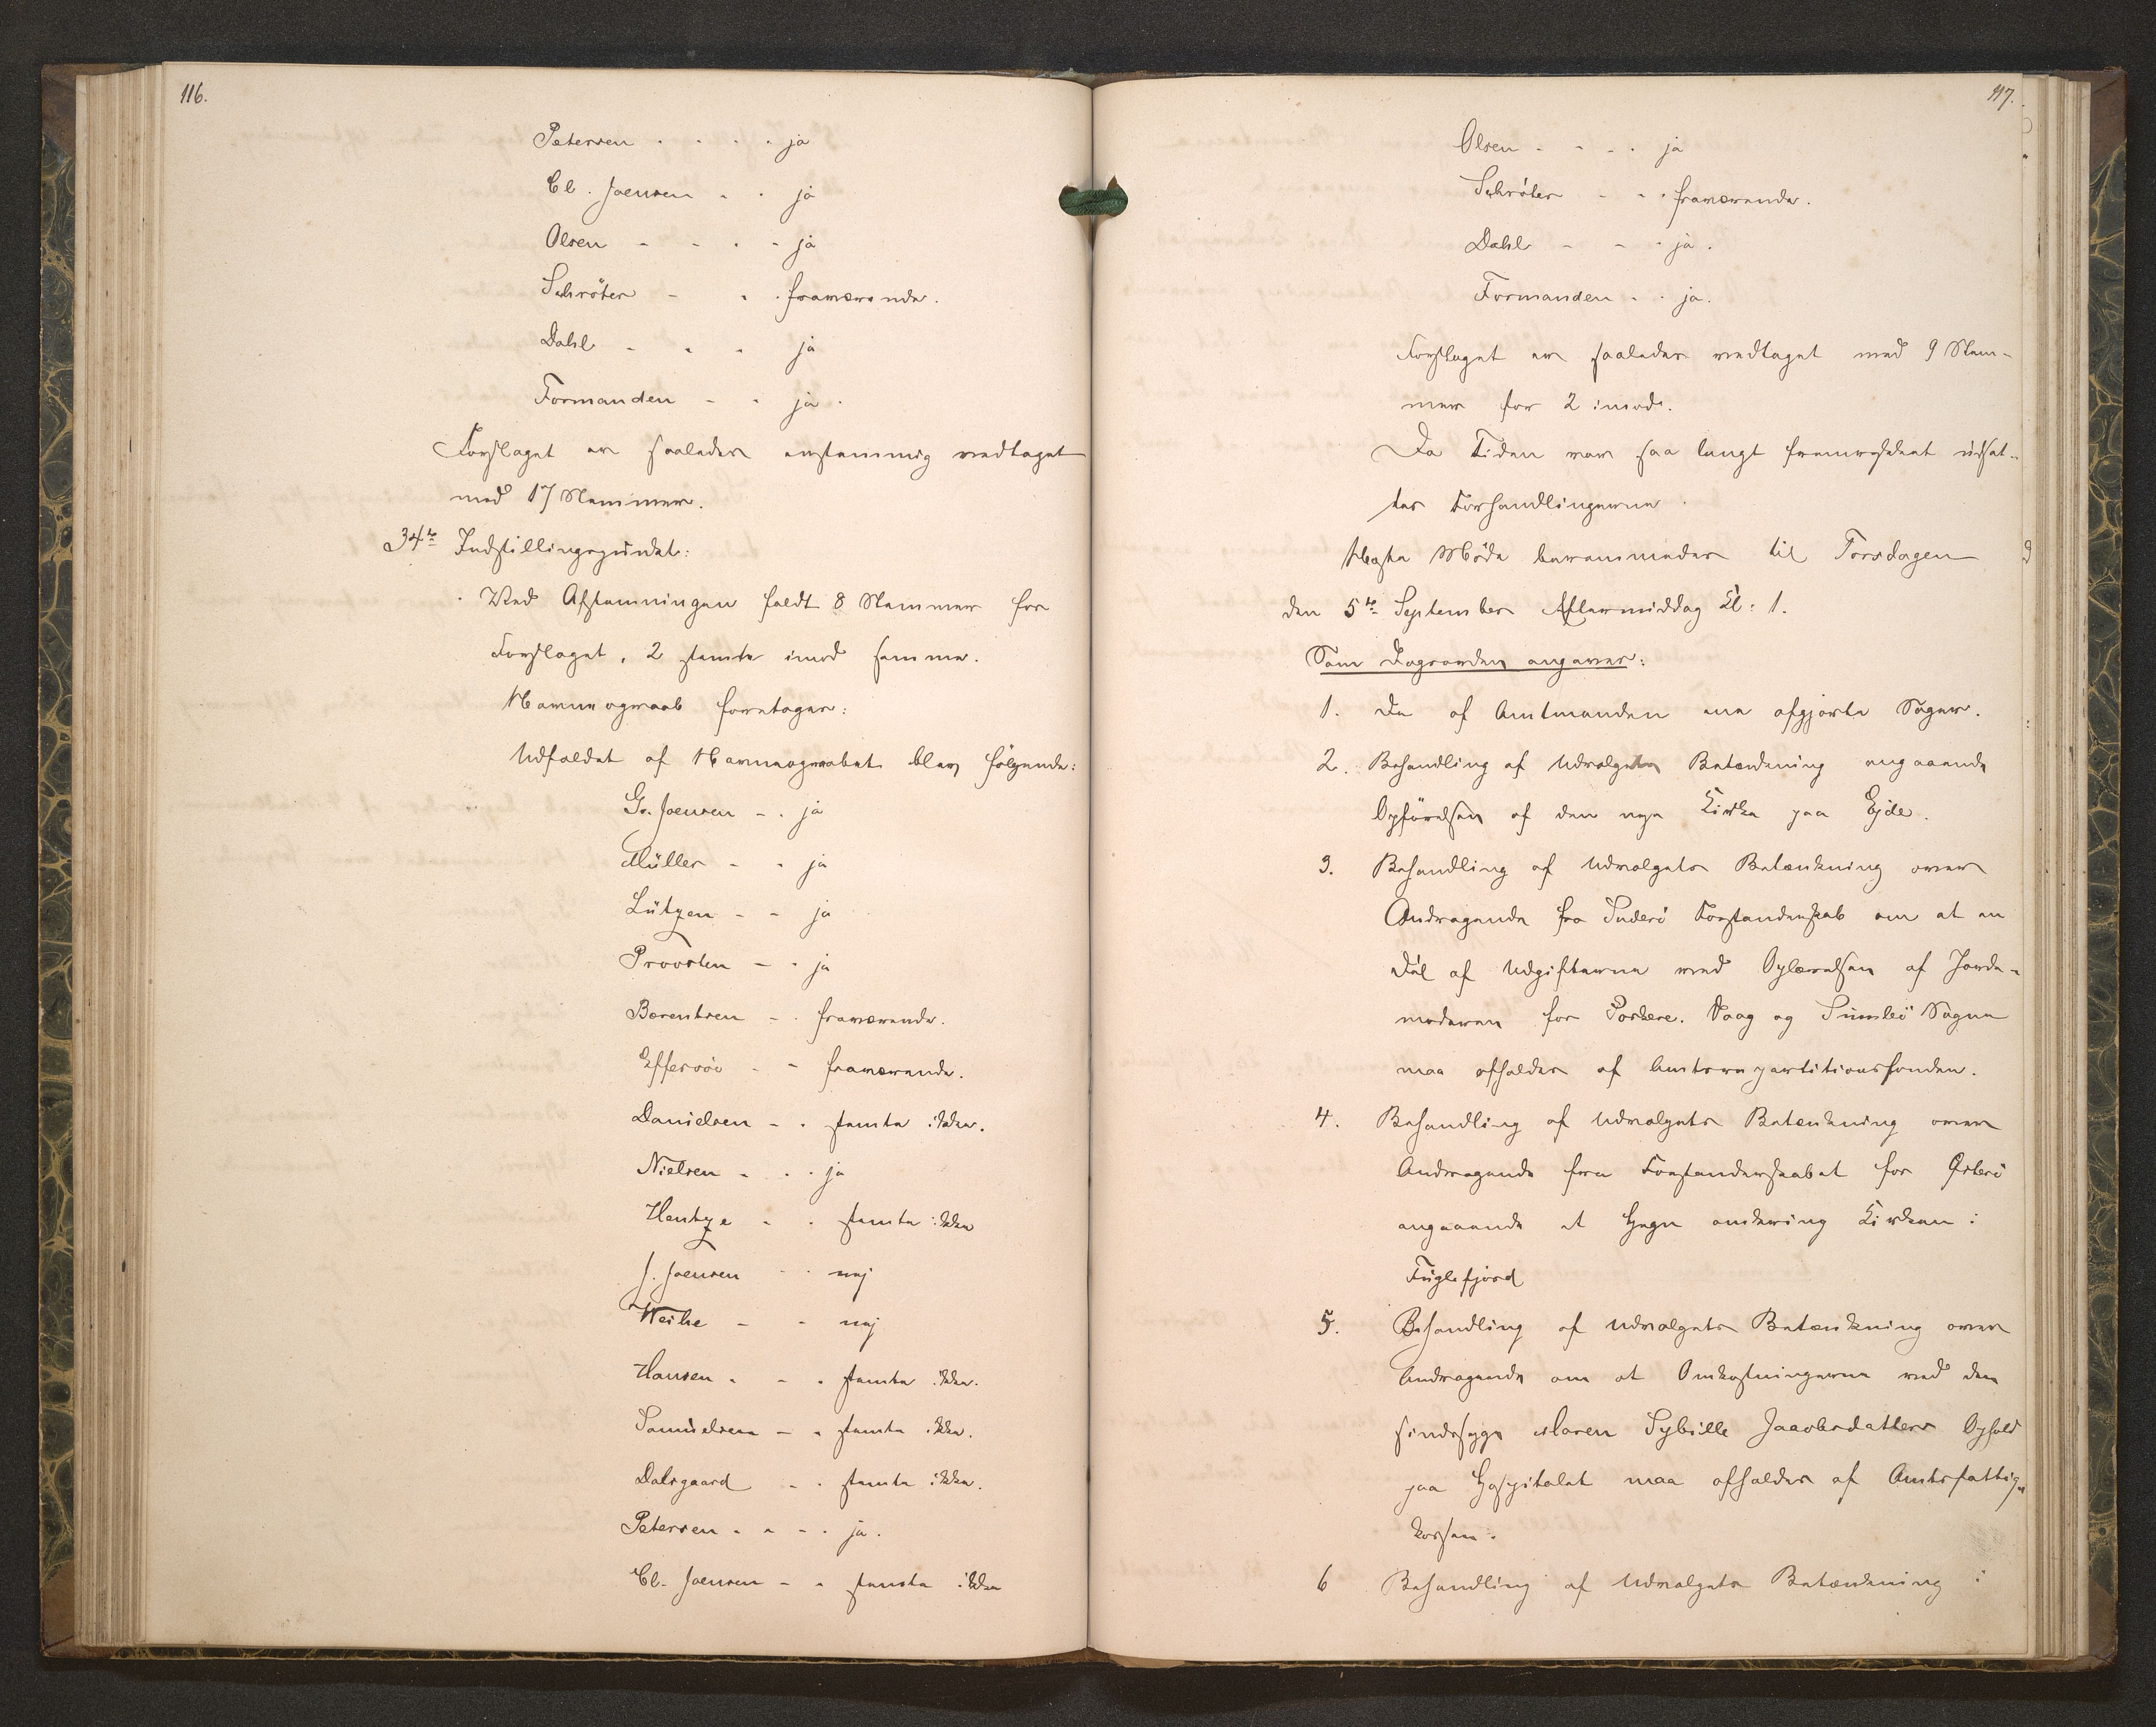 116.
Petersen - - - - ja
Cl. Joensen - - ja
Olsen - - - - ja
Schröter - - - fraværende.
Dahl - - - ja
Formanden - - ja.
Forslaget er saaledes enstemmig vedtaget
med 17 Stemmer.
34te Indstillingspunkt:
Ved Afstemningen faldt 8 Stemmer for
Forslaget, 2 stemte imod samme.
Navneopraab foretages:
Udfaldet af Navneopraabet blev følgende:
G. Joensen - - ja
Müller - - ja
Lützen - - ja
Provsten - - ja
Bærentsen - - fraværende.
Effersöe - - fraværende.
Danielsen - - stemte ikke.
Nielsen - - - ja
Hentze - - stemte ikke
J. Joensen - - nej
Weihe - - nej
Hansen - - - stemte ikke.
Samuelsen - - stemte ikke.
Dalsgaard - - stemte ikke.
Petersen - - - - ja.
Cl. Joensen - - stemte ikke
117.
Olsen - - - - ja
Schröter - - - fraværende.
Dahl - - - ja.
Formanden - - ja.
Forslaget er saaledes vedtaget med 9 Stem-
mer for 2 imod.
Da Tiden var saa langt fremrykket udsæt-
tes Forhandlingerne.
Næste Møde berammedes til Torsdagen
den 5te September Eftermiddag Kl: 1.
Som Dagsorden angives:
1. De af Amtmanden ene afgjorte Sager.
2. Behandling af Udvalgets Betænkning angaaende
Opførelsen af den nye Kirke paa Ejde.
3. Behandling af Udvalgets Betænkning over
Andragende fra Suderö Forstanderskab om at en
Del af Udgifterne ved Oplærelsen af Jorde-
moderen for Porkere. Vaag og Sumbö Sogne
maa afholdes af Amtsrepartitionsfonden.
4. Behandling af Udvalgets Betænkning over
Andragende fra Forstanderskabet for Østerö
angaaende at Hegn omkring Kirken i
Fuglefjord
5. Behandling af Udvalgets Betænkning over
Andragende om at Omkostningerne ved den
sindssyge Maren Sybille Jacobsdatters Ophold
paa Hospitalet maa afholdes af Amtsfattig-
kassen.
6 Behandling af Udvalgets Betænkning i